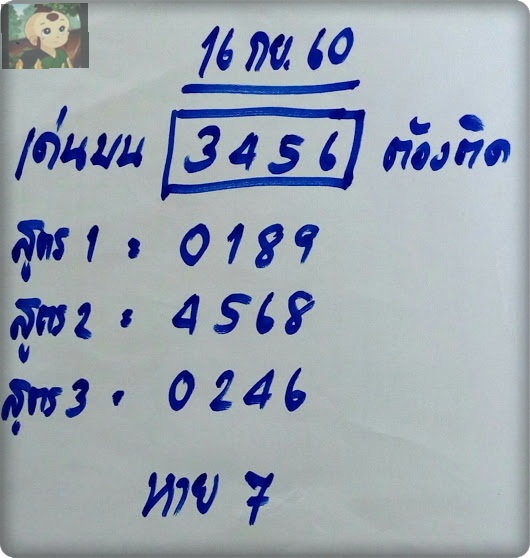 16 กย. 60
เด่นบน 3456 ต้องติด
สูตร 1 = 0189
สูตร 2 = 4568
สูตร 3 = 0246
หาย 7